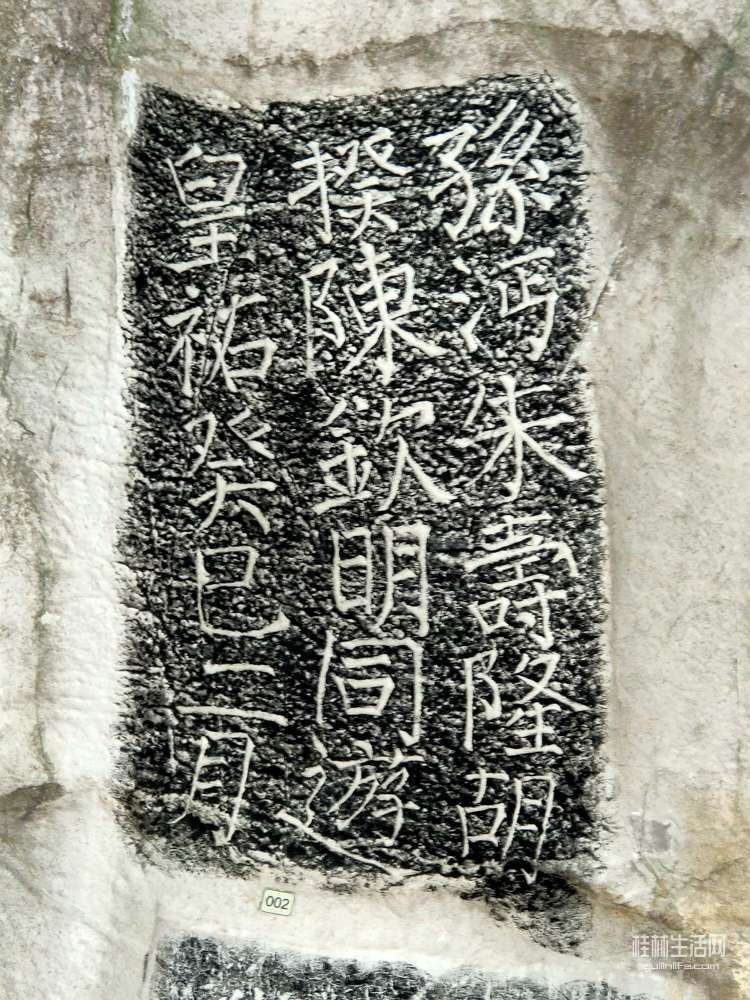 孫沔朱壽隆胡
揆陳欽明同遊
皇祐癸巳二月
002
桂林生活网
guilinlife.com